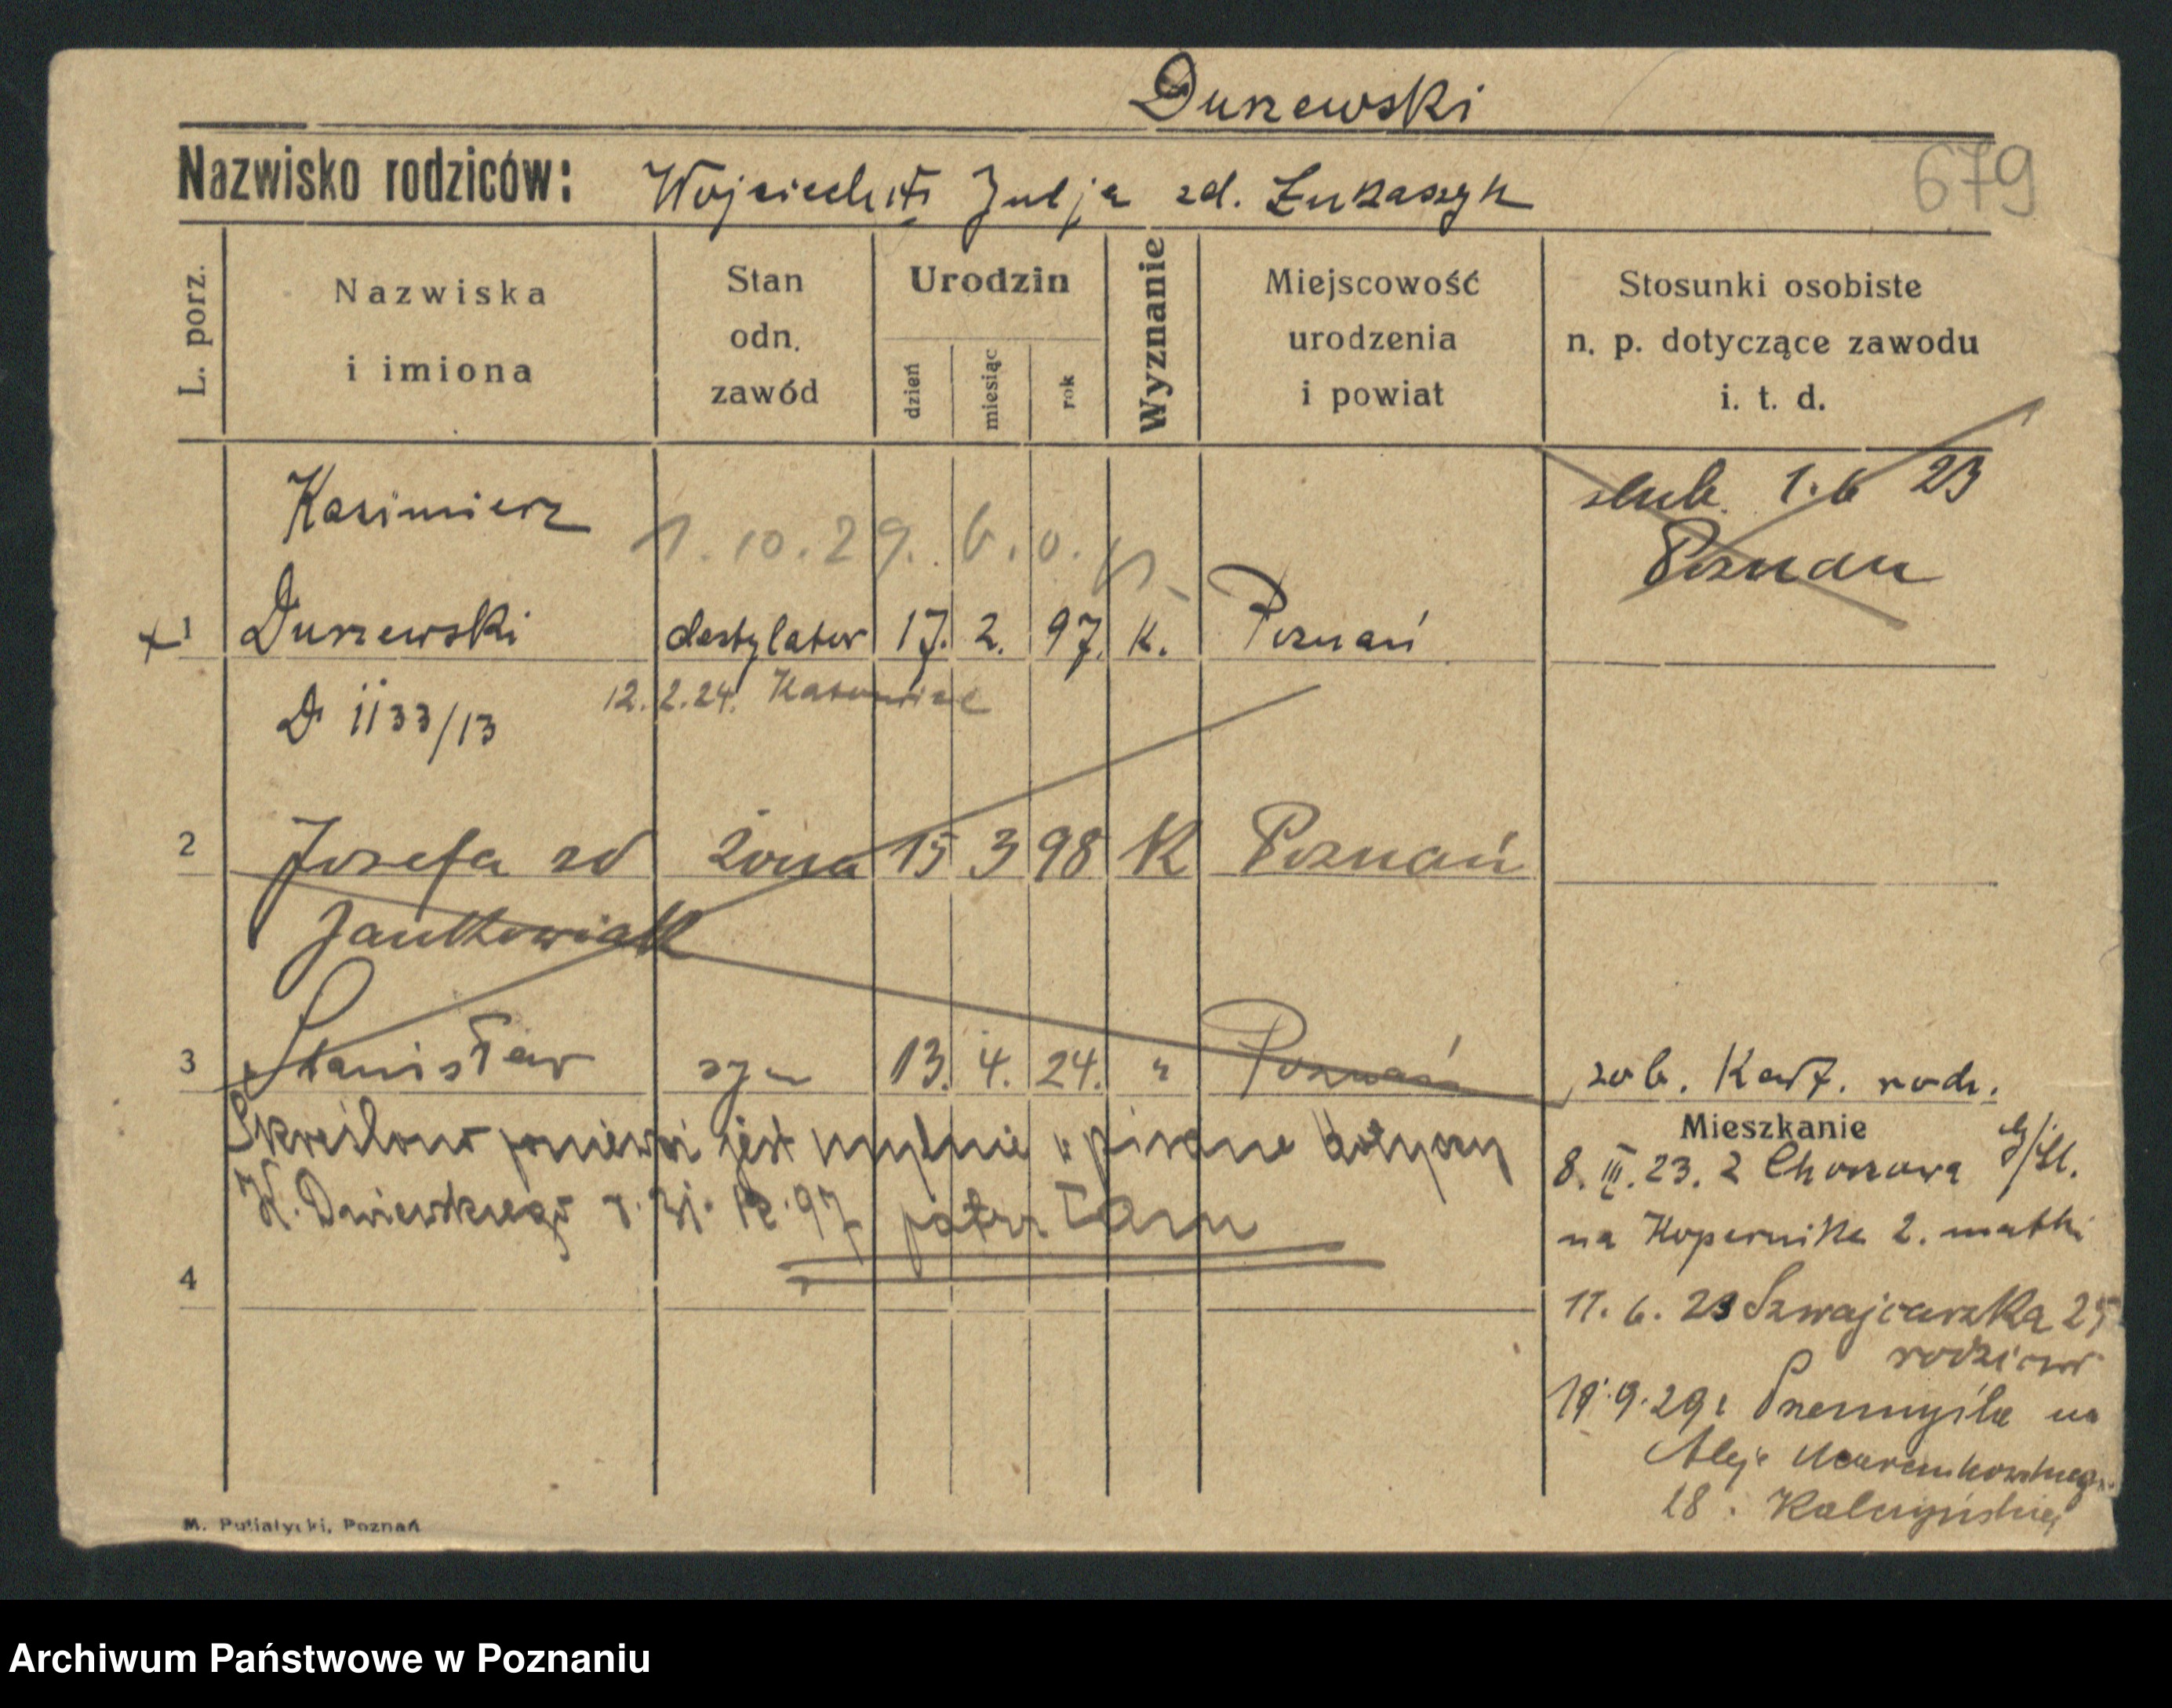 Durzewski
Nazwisko rodziców: Wojciech i Julja zd. Łukaszyk
679
L. porz.
Nazwiska
i imiona
Stan
odn.
zawód
Urodzin
dzień
miesiąc
rok
Wyznanie
Miejscowość
urodzenia
i powiat
Stosunki osobiste
n. p. dotyczące zawodu
i. t. d.
Kazimierz
1. 10. 29.
ślub. 1.6 23
Poznań
1 Durzewski destylator 17. 2. 97. K. Poznań
D 1133/13
12.2.24. Katowice
2 Józefa zd żona 15 3 98 K Poznań
Jankowiak
3 Stanisław syn 13. 4. 24. " Poznań
zob. Kart. rodz.
Skreślono ponieważ jest mylnie wpisane dotyczy
K. Durzewskiego 12.97 patrz tam
4
Mieszkanie
8. III. 23. z Chorzowa G/Śl.
na Kopernika 2. matki
11. 6. 23 Szwajcarska 25
rodziców
19.9.29 z Przemyśla na
Aleje Marcinkowskiego
18.
M. Putiatycki, Poznań
Archiwum Państwowe w Poznaniu